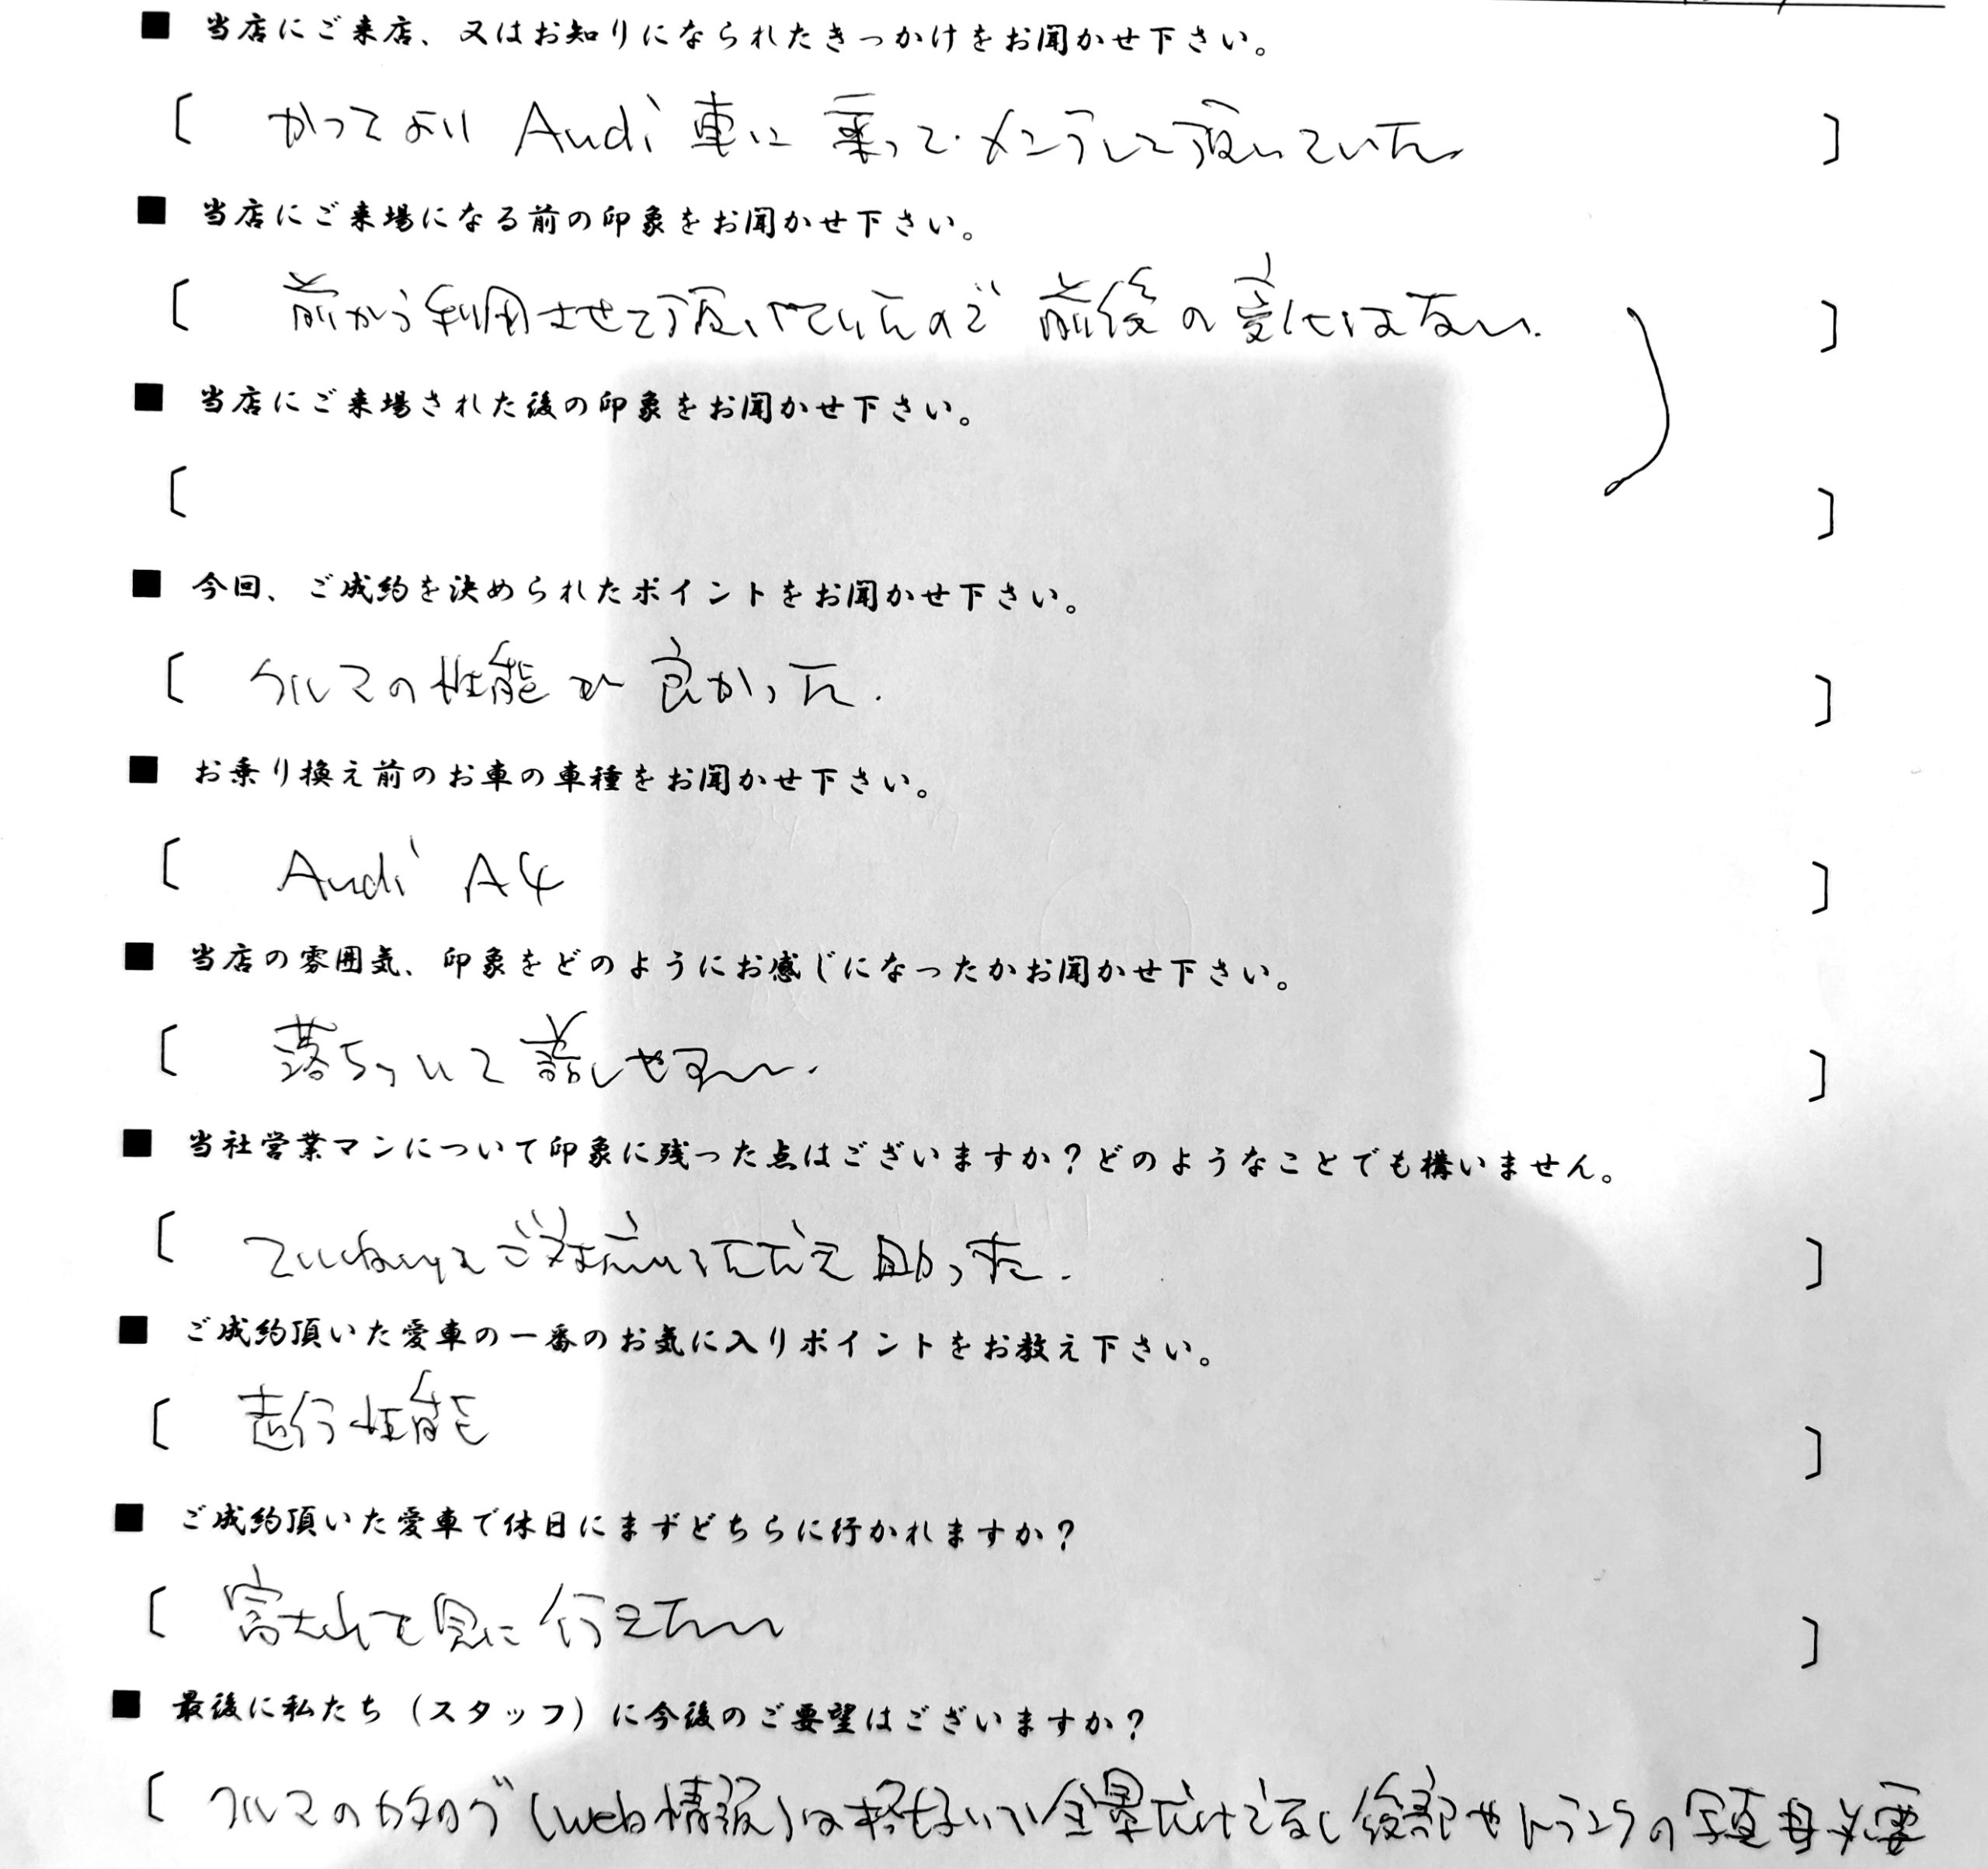 ■ 当店にご来店、又はお知りになられたきっかけをお聞かせ下さい。
〔 かってより Audi 車に 乗って・メンテして頂いていた 〕
■ 当店にご来場になる前の印象をお聞かせ下さい。
〔 前から利用させて頂いていたので 前後の変化はない. 〕
■ 当店にご来場された後の印象をお聞かせ下さい。
〔 〕
■ 今回、ご成約を決められたポイントをお聞かせ下さい。
〔 クルマの性能が良かった. 〕
■ お乗り換え前のお車の車種をお聞かせ下さい。
〔 Audi A4 〕
■ 当店の雰囲気、印象をどのようにお感じになったかお聞かせ下さい。
〔 落ちついて話しやすい. 〕
■ 当社営業マンについて印象に残った点はございますか？どのようなことでも構いません。
〔 ていねいにご対応いただき助かった. 〕
■ ご成約頂いた愛車の一番のお気に入りポイントをお教え下さい。
〔 走行性能 〕
■ ご成約頂いた愛車で休日にまずどちらに行かれますか？
〔 富士山を見に行きたい 〕
■ 最後に私たち（スタッフ）に今後のご要望はございますか？
〔 クルマのカタログ(web情報)は格好いい全景だけでなく後部やトランクの写真も必要